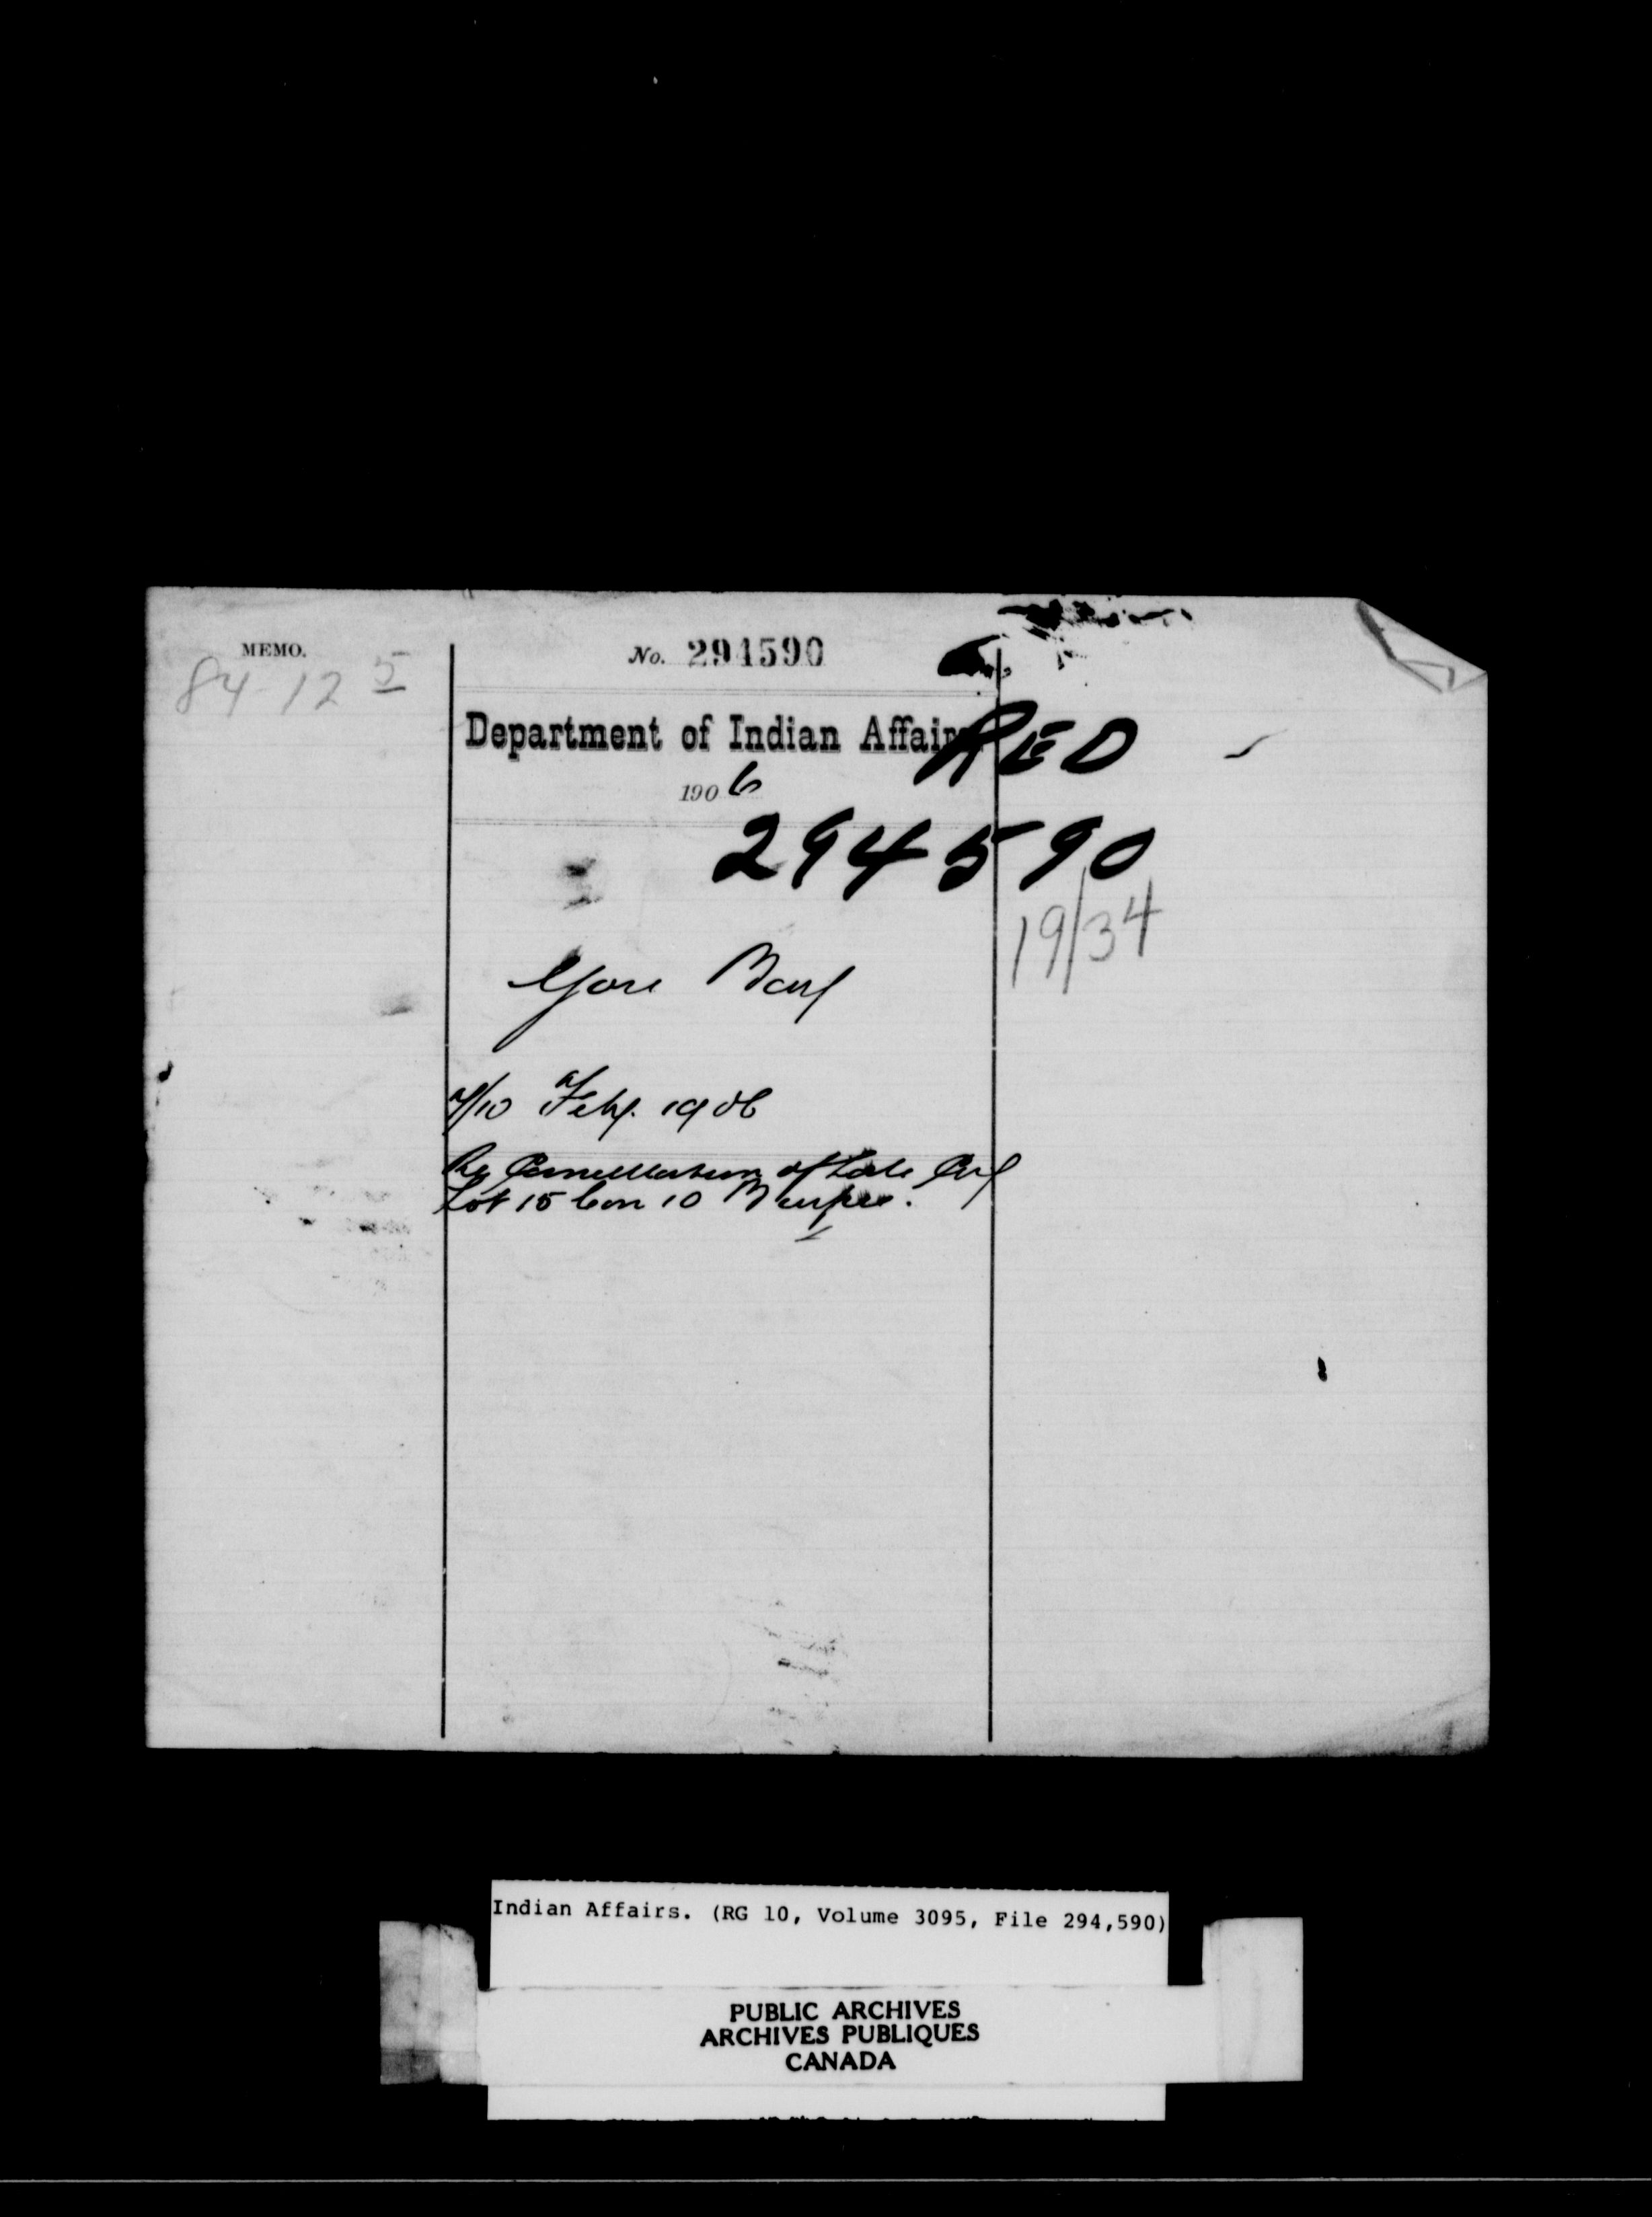 MEMO.
84-12 5
No. 294590
Department of Indian Affairs
RED
1906
294590
19/34
Gore Bay
10 Feby. 1906
Re Cancellation of Sale
Lot 15 Con 10
Indian Affairs. (RG 10, Volume 3095, File 294,590)
PUBLIC ARCHIVES
ARCHIVES PUBLIQUES
CANADA